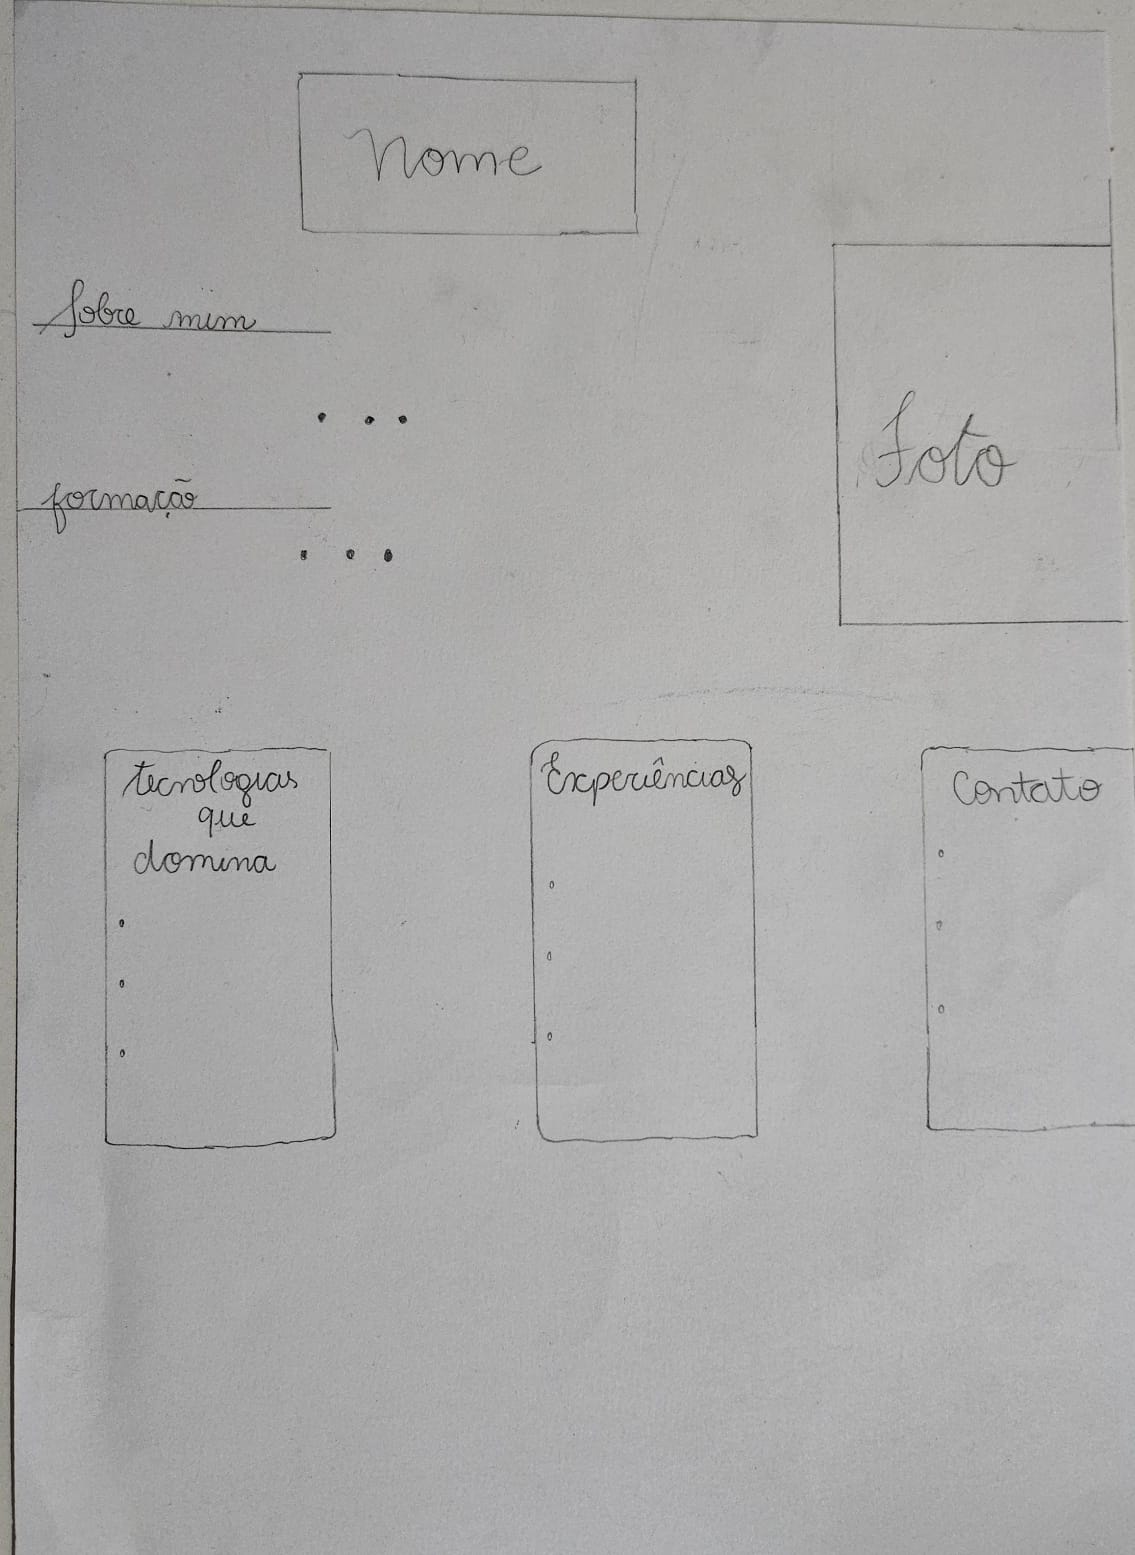 Nome
Sobre mim
. . .
Foto
formação
. . .
tecnologias
que
domina
Experiências
Contato